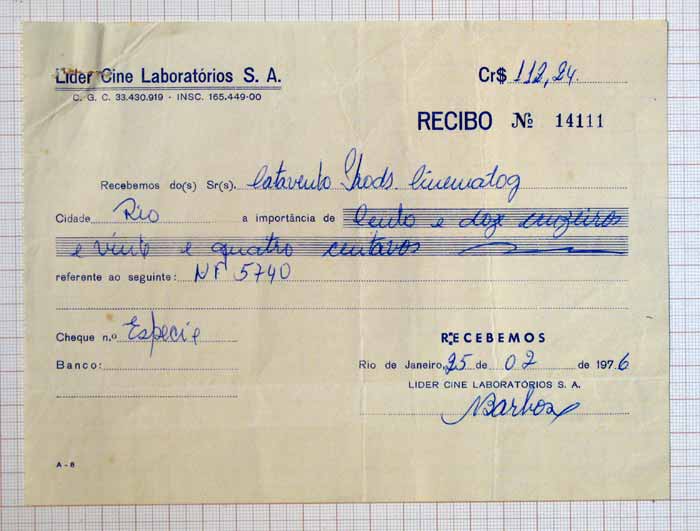 Líder Cine Laboratórios S. A.
C. G. C. 33.430.919 - INSC. 165.449-00
Cr$ 112,24
RECIBO Nº 14111
Recebemos do(s) Sr(s). Catavento Prods. Cinematog
Cidade Rio a importância de Cento e doze cruzeiros
e vinte e quatro centavos
referente ao seguinte: NF 5740
Cheque n.º Especie
Banco:
RECEBEMOS
Rio de Janeiro, 25 de 02 de 1976
LIDER CINE LABORATÓRIOS S. A.
Barbosa
A - 8